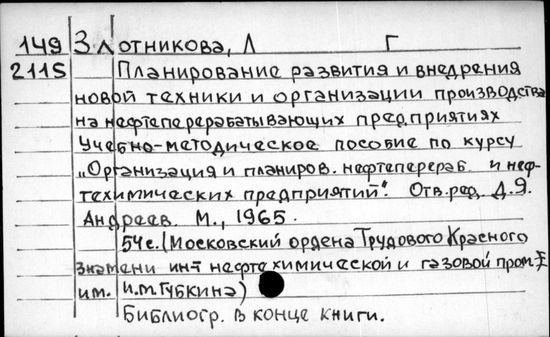 149 Злотникова, Л Г
2115 Планирование развития и внедрения
новой техники и организации производства
на нефтеперерабатывающих предприятиях
Учебно-методическое пособие по курсу
„Организация и планиров. нефтеперераб. и неф-
техимических предприятий". Отв. ред. Д.Я.
Андреев. М., 1965.
54 с. (Московский ордена Трудового Красного
Знамени ин-т нефтехимической и газовой пром-
им. И.М. Губкина)
Библиогр. в конце книги.